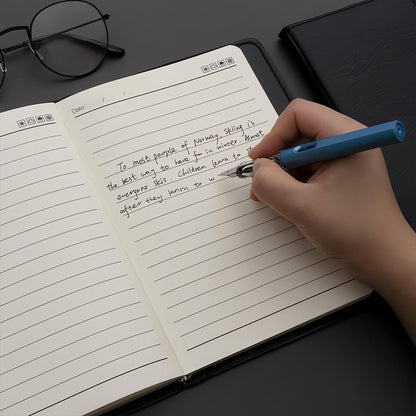 Date / /
To most people of Norway, Skiing is
the best way to have fun in winter. Almost
everyone skis. Children learn to
after they learn to w